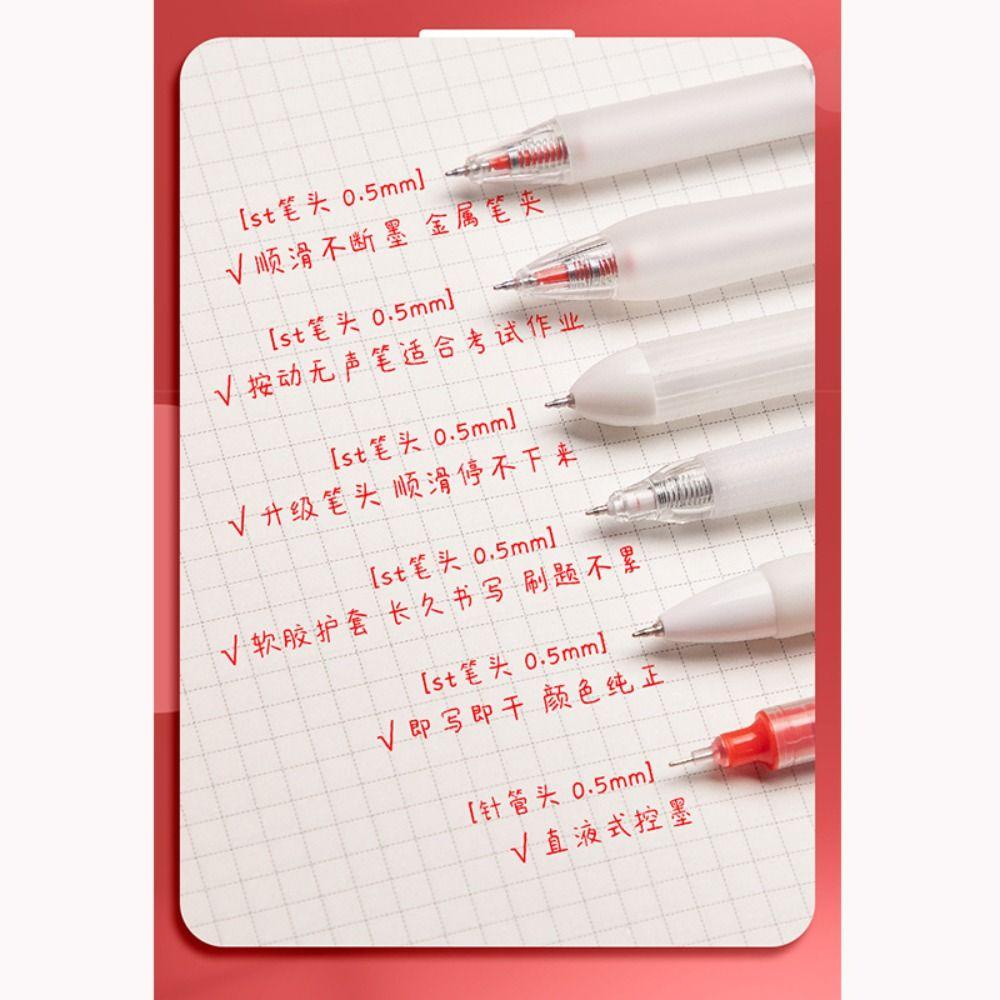 [st笔头 0.5mm]
√ 顺滑不断墨 金属笔夹
[st笔头 0.5mm]
√ 按动无声笔适合考试作业
[st笔头 0.5mm]
√ 升级笔头 顺滑停不下来
[st笔头 0.5mm]
√ 软胶护套 长久书写 刷题不累
[st笔头 0.5mm]
√ 即写即干 颜色纯正
[针管头 0.5mm]
√ 直液式控墨